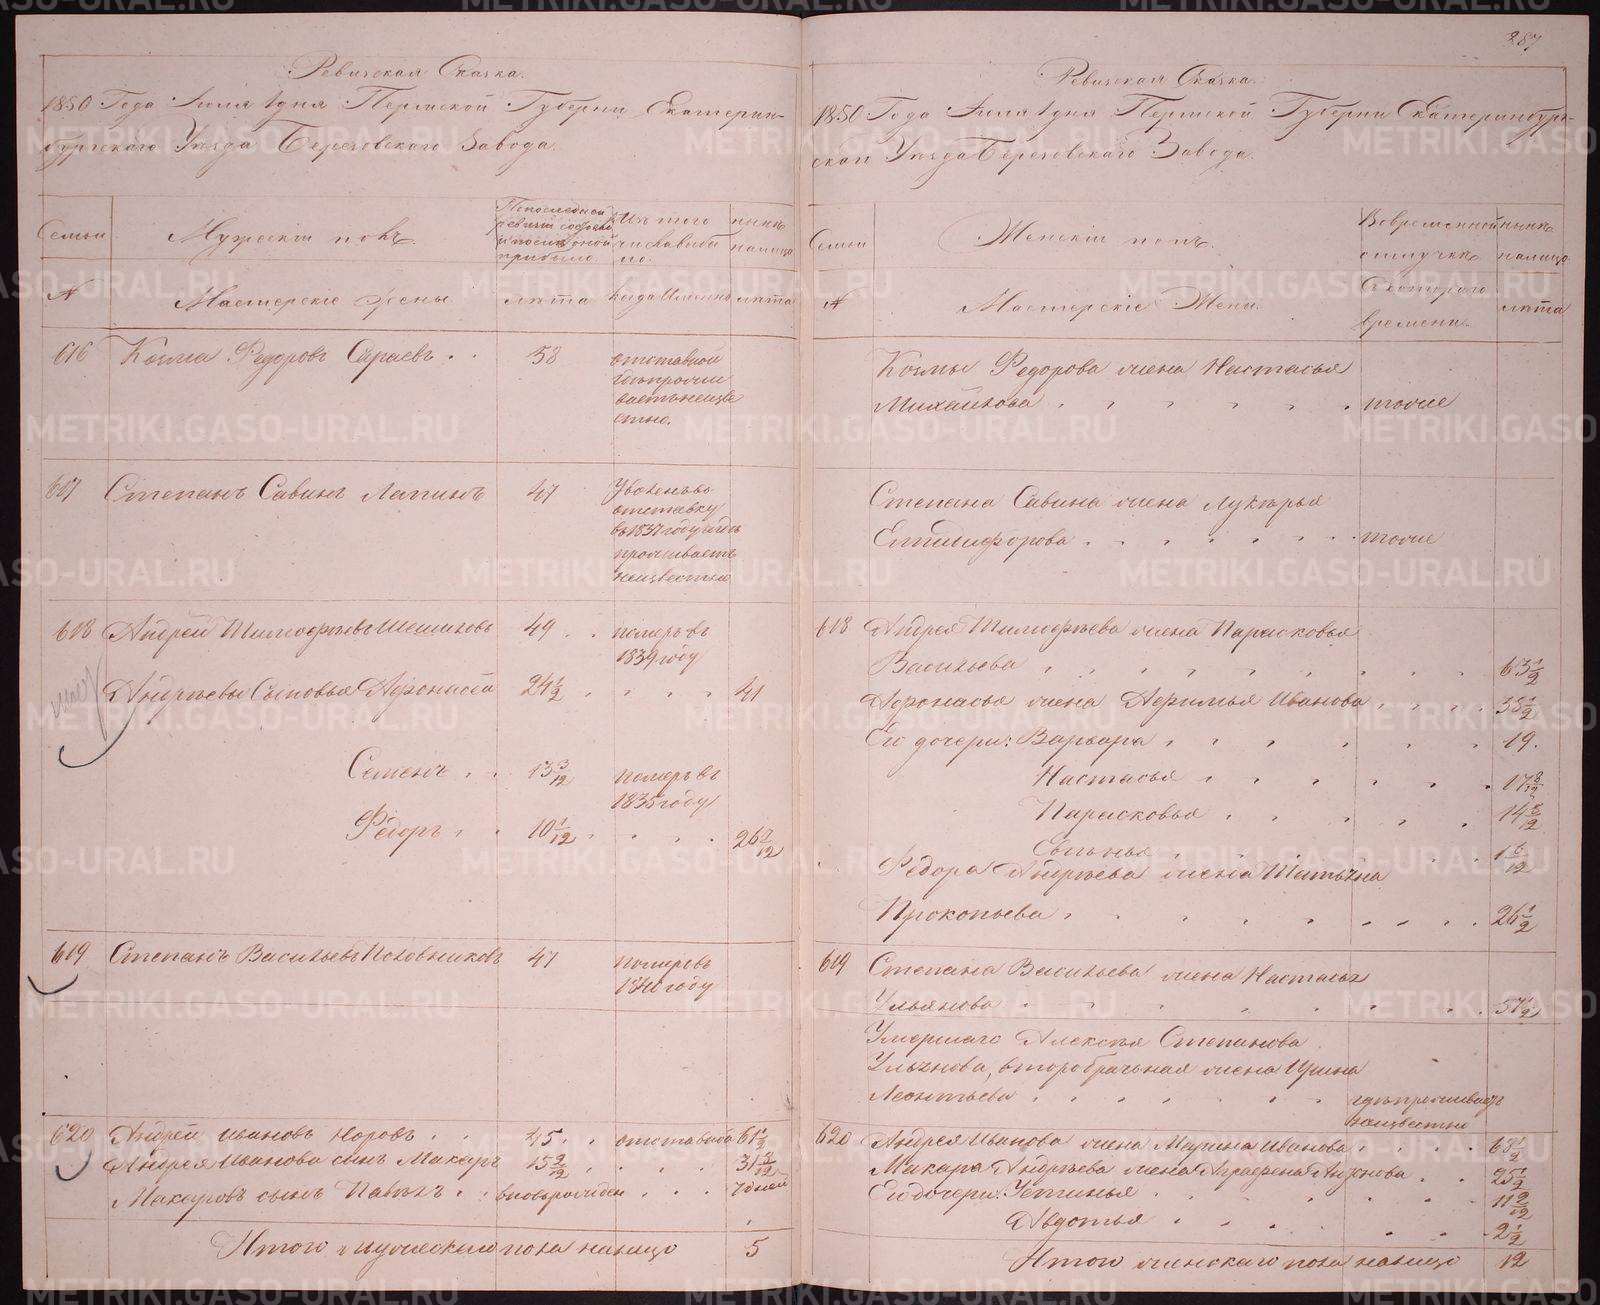 Ревизская Сказка.
1850 Года Июля 1 дня Пермской Губерни Екатерин-
бургскаго Уѣзда Березовскаго Завода.
Семьи
Мужескій полъ.
По последней ревизіи состояло и после оной прибыло
Изъ того числа выбыло.
нынѣ налицо
№
Мастерскіе
лѣта
Когда Именно
лѣта
616 Козма Федоровъ Сараевъ . . 58 отставной
где прожи
ваетъ неизве
стно.
617 Степанъ Савинъ Лапинъ 47 Уволенъ въ
отставку
въ 1837 году гдѣ
проживаетъ
неизвестно
618 Андрей Тимофѣевъ Шешуковъ 49 . . померъ въ
1839 году
Андрѣевы Сыновья Афонасей 24 1/2 41
Семенъ . . 13 3/12 померъ въ
1835 году
Федоръ . . 10 1/12 26 7/12
619 Степанъ Васильевъ Половниковъ 47 померъ въ
1840 году
620 Андрей Ивановъ Норовъ . . 45 . . отставной 61 1/2
Андрея Иванова сынъ Макаръ 15 2/12 31 8/12
Макаровъ сынъ Павелъ . . вновьрожден . . . 7 дней
Итого мужескаго пола налицо 5
287
Ревизская Сказка.
1850 Года Июля 1 дня Пермской Губерни Екатеринбург-
скаго Уѣзда Березовскаго Завода.
Семьи
Женскій полъ.
Во временной отлучкѣ
нынѣ налицо
№
Мастерскіе Жены.
Съ котораго времени
лѣта
Козмы Федорова жена Настасья
Михайлова . . . . . . тоже
Степана Савина жена Лукерья
Елпидифорова . . . . . . тоже
618 Андрея Тимофѣева жена Парасковья
Васильева . . . . . . . . 63 1/2
Афонасья жена Афимья Иванова . . . . 38 1/2
Его дочери: Варвара . . . . . . 19.
Настасья . . . . . . 17 8/12
Парасковья . . . . . 14 5/12
. . . . . . 1 6/12
Федора Андрѣева жена Татьяна
Прокопьева . . . . . . . . 26 1/2
619 Степана Васильева жена Настасья
Ульянова . . . . . . . 57 1/2
Умершаго Алексѣя Степанова
Ульянова, второбрачьная жена Ирина
Леонтьева . . . . . . гдѣ проживаетъ
неизвестно
620 Андрея Иванова жена Марина Иванова . . . . 63 1/2
Макара Андрѣева жена Аграфена . . 25 1/2
Его дочери: Устинья . . . . . . 11 2/12
Авдотья . . . . . . 2 1/2
Итого женскаго пола налицо 12
METRIKI.GASO-URAL.RU